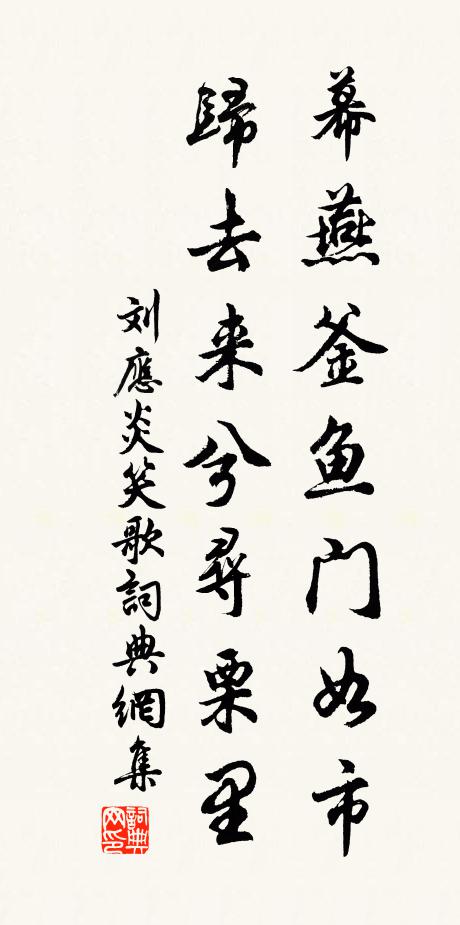 幕燕釜鱼门如市
歸去来兮尋栗里
刘應炎笑歌詞典網集
詞典网印